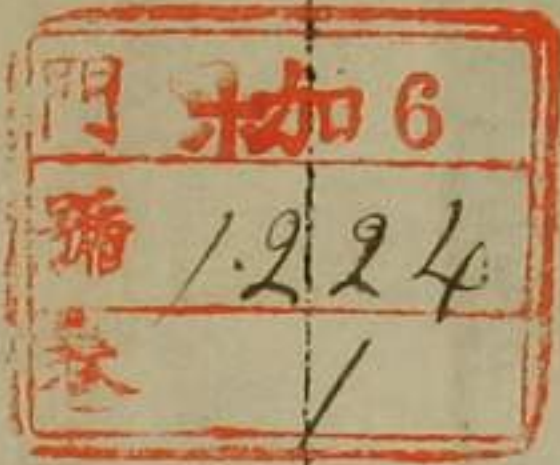 門 ホ加 6
號 1224
卷 1